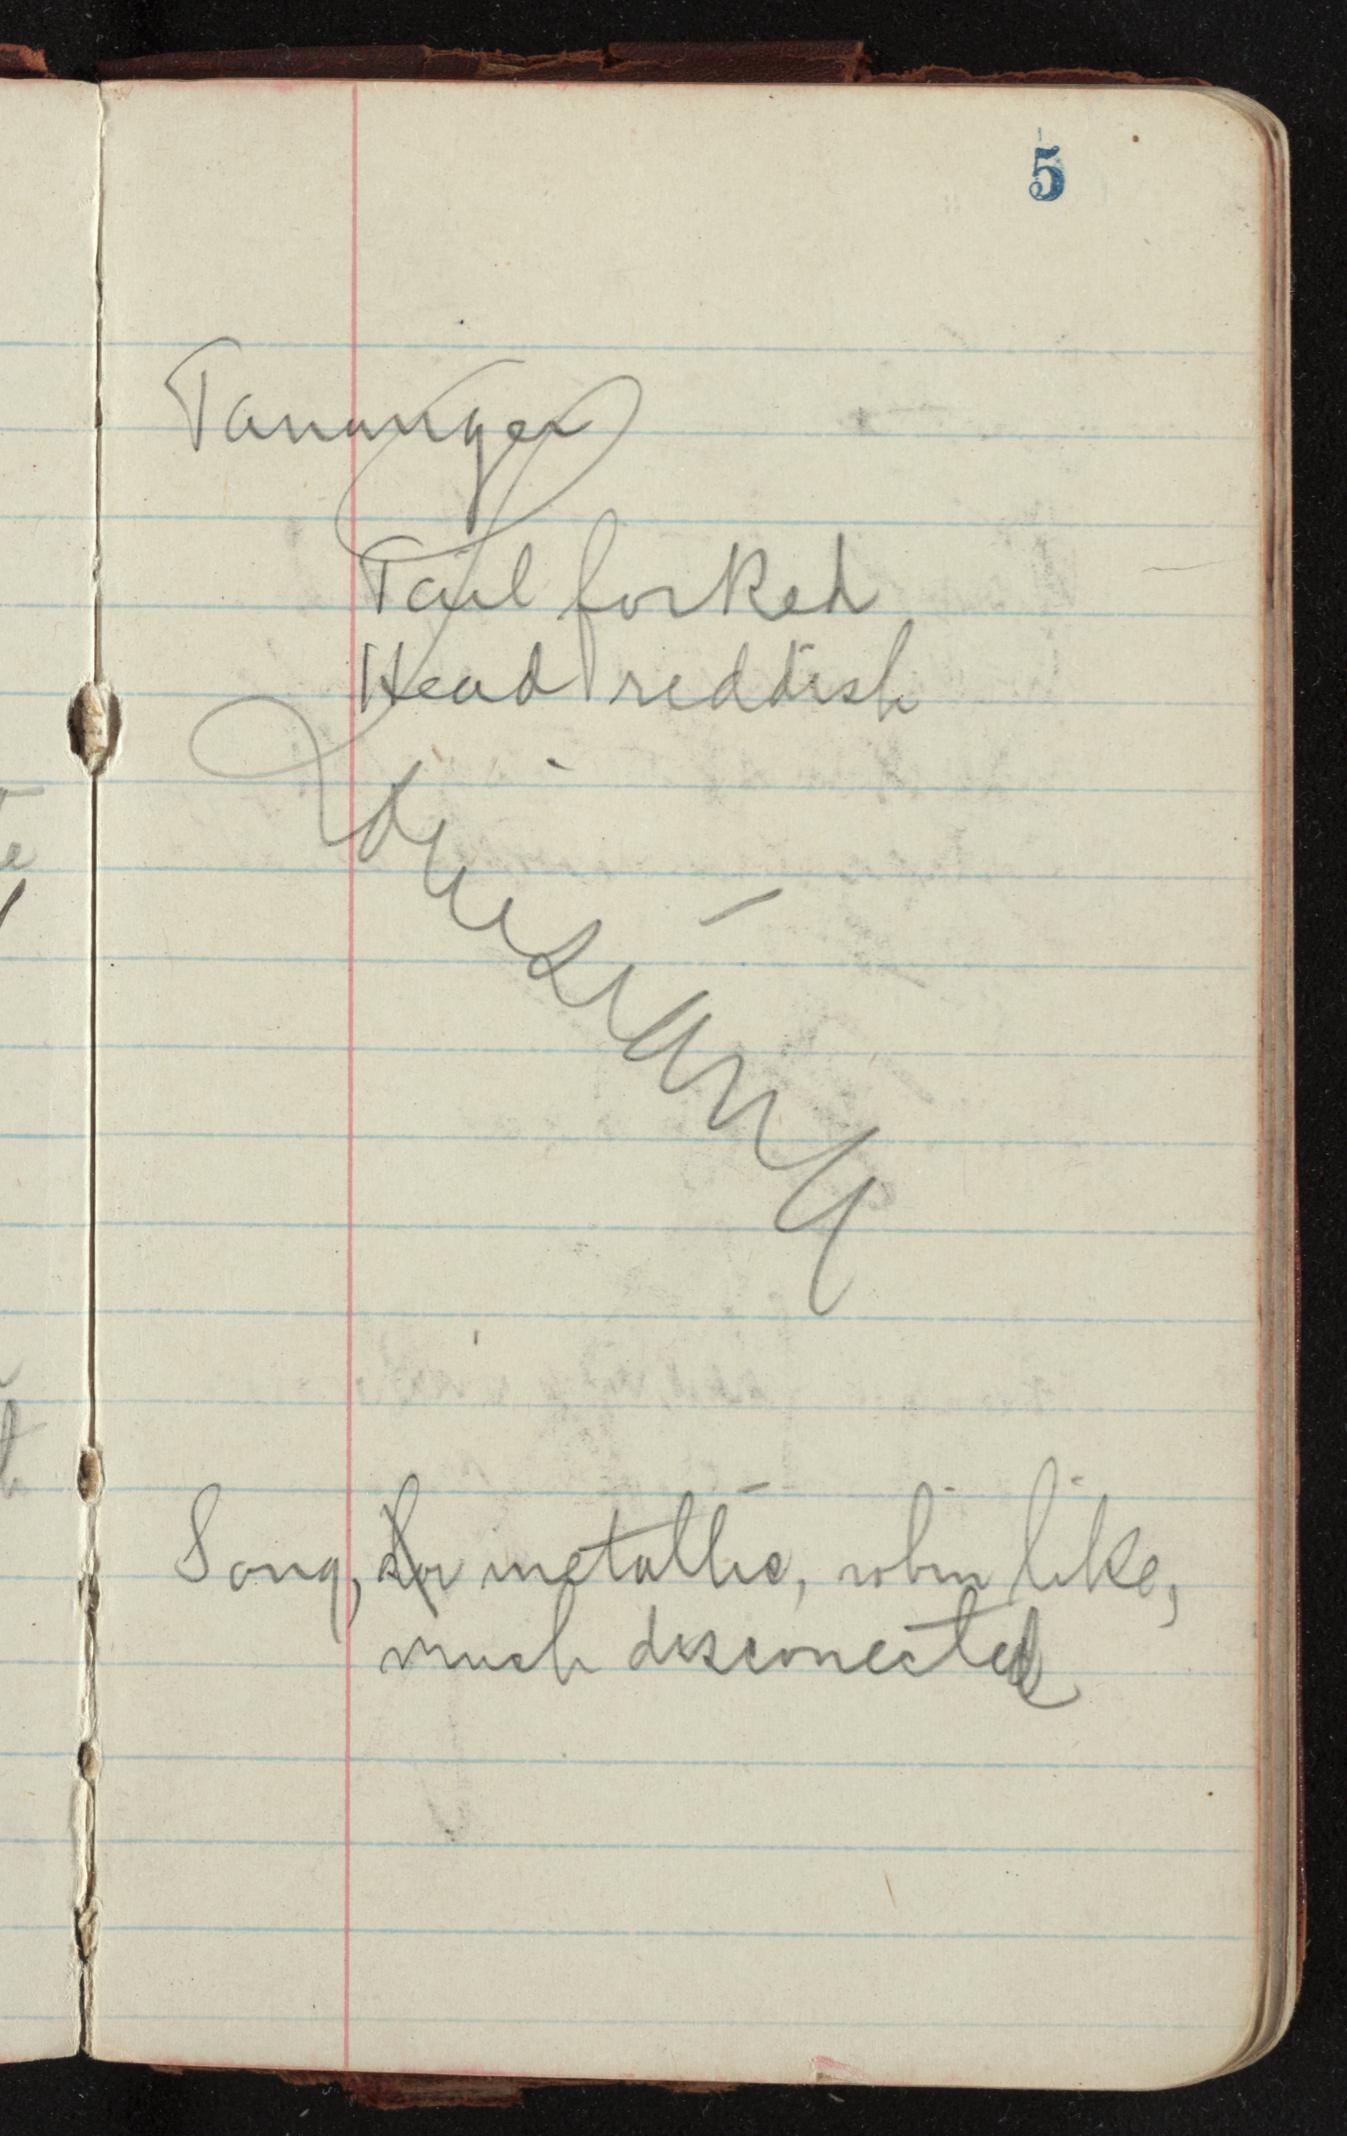 5
Tananger
Tail forked
Head reddish
Louisiana
Song, metallic, robin like,
much disconected